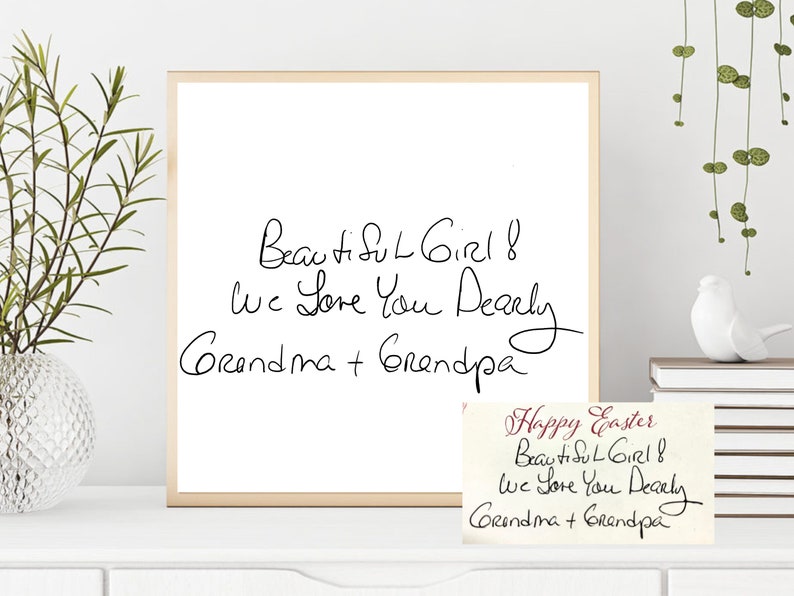 Beautiful Girl!
We Love You Dearly
Grandma + Grandpa
Happy Easter
Beautiful Girl!
We Love You Dearly
Grandma + Grandpa